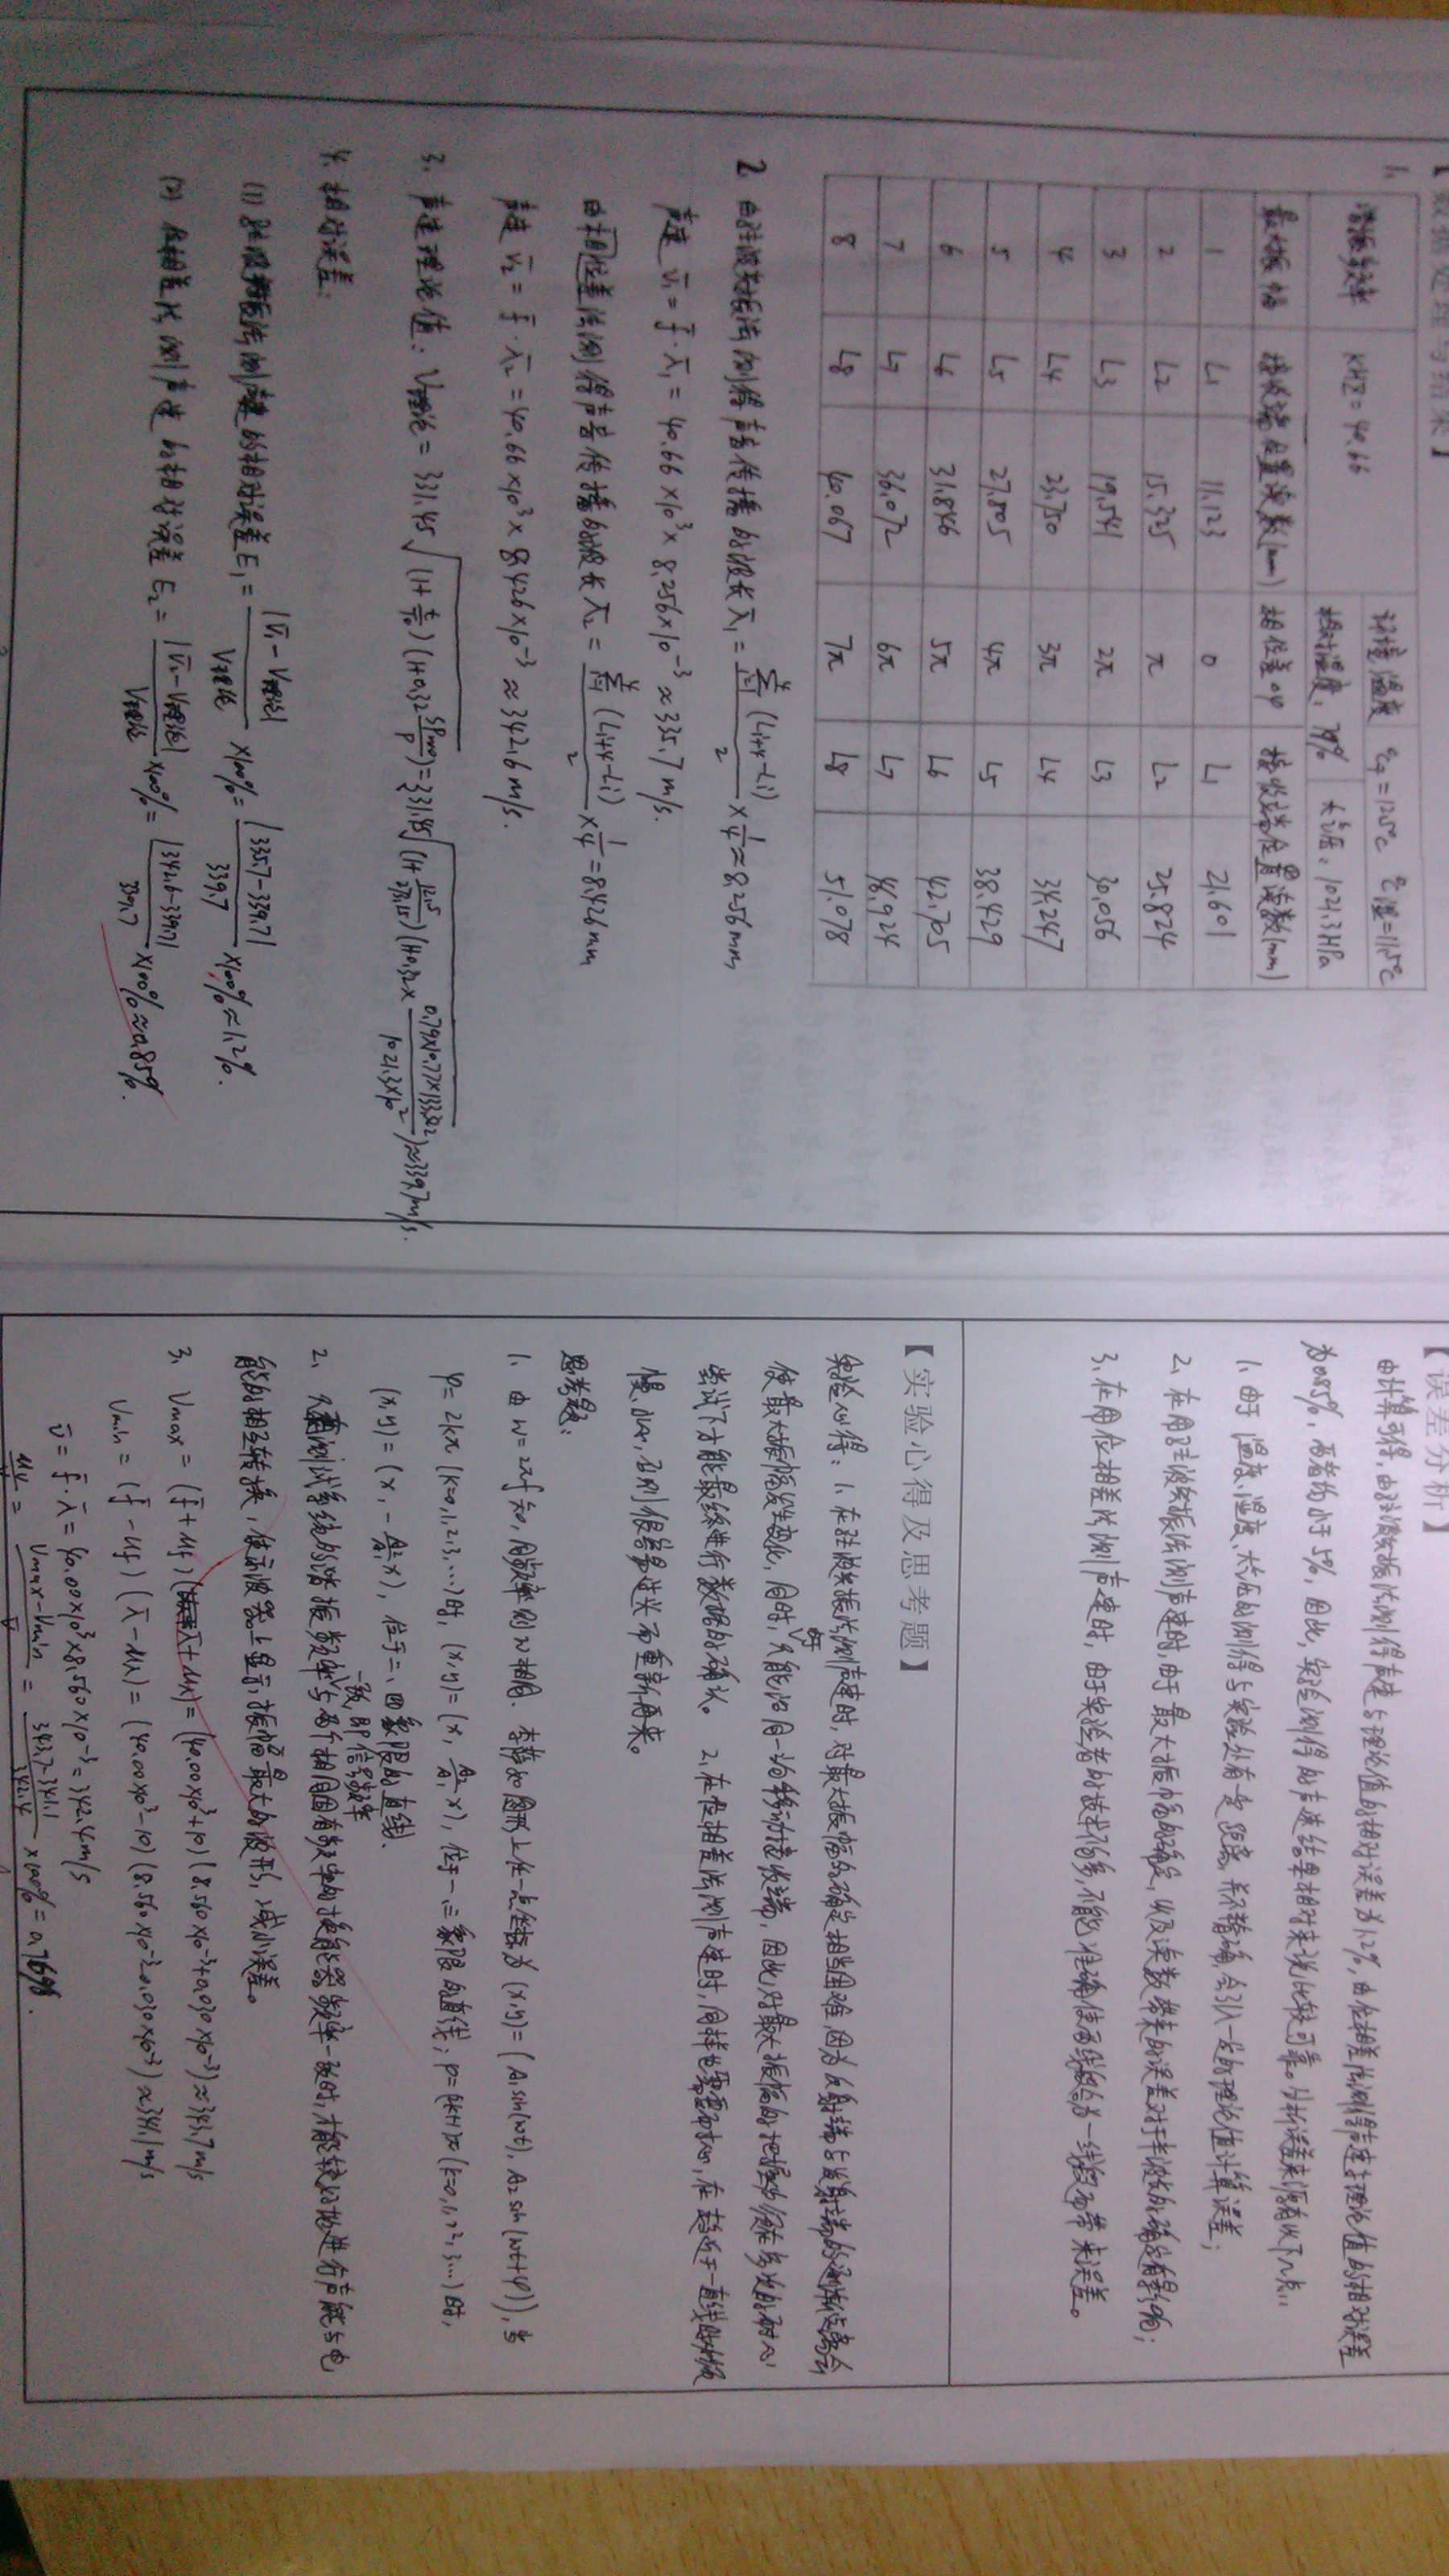 【数据处理与结果】
1.
谐振频率 KHZ=40.66 环境温度 t干=12.5℃ t湿=11.5℃
相对湿度:79% 大气压:1021.3HPa
最大振幅 接收端位置读数(mm) 相位差φ 接收端位置读数(mm)
1 L1 11.123 0 L1 21.601
2 L2 15.325 π L2 25.824
3 L3 19.541 2π L3 30.056
4 L4 23.750 3π L4 34.247
5 L5 27.805 4π L5 38.429
6 L6 31.846 5π L6 42.705
7 L7 36.072 6π L7 46.924
8 L8 40.067 7π L8 51.078
2. 由驻波共振法测得声音传播的波长 λ̄1 = Σ(Li+4-Li)/2 × 1/4 ≈ 8.256mm
声速 v̄1 = f̄·λ̄1 = 40.66×10³×8.256×10⁻³ ≈ 335.7m/s.
由相位差法测得声音传播的波长 λ̄2 = Σ(Li+4-Li)/2 × 1/4 = 8.426mm
声速 v̄2 = f̄·λ̄2 = 40.66×10³×8.426×10⁻³ ≈ 342.6m/s.
3. 声速理论值:V理论 = 331.45√((1+t/T0)(1+0.32 φPmo/P)) = 331.45√((1+12.5/273.15)(1+0.32×0.79×10.77×133.32/1021.3×10²)) ≈ 339.7m/s.
4. 相对误差:
(1) 驻波共振法测声速的相对误差E1 = |v̄1-V理论|/V理论 ×100% = |335.7-339.7|/339.7 ×100% ≈ 1.2%.
(2) 位相差法测声速的相对误差E2 = |v̄2-V理论|/V理论 ×100% = |342.6-339.7|/339.7 ×100% ≈ 0.85%.
【误差分析】
由计算可得,由驻波共振法测得声速与理论值的相对误差为1.2%,由位相差法测得声速与理论值的相对误差
为0.85%,两者均小于5%,因此,实验测得的声速结果相对来说比较可靠。分析误差来源有以下几点:
1. 由于温度、湿度、大气压的测得与实验处有一定距离,并不精确,会引入一定的理论值计算误差;
2. 在用驻波共振法测声速时,由于最大振幅的确定,以及读数带来的误差对于半波长的确定有影响;
3. 在用位相差法测声速时,由于实验者的技术因素,不能准确使两线段合为一线段而带来误差。
【实验心得及思考题】
实验心得:1. 在驻波共振法测声速时,对最大振幅的确定相当困难,因为反射端与发射端的逐渐远离会
使最大振幅发生变化,同时,由于只能沿同一方向移动接收端,因此,对最大振幅的把握必须在多次的耐心
尝试下才能最终进行数据的确认。 2. 在位相差法测声速时,同样也需要耐心,在趋近于一直线时必须
慢、小心,否则很容易过头而重新再来。
思考题:
1. 由w=2πf知,同频率则w相同. 李萨如图形上任一点坐标为(x,y)=(A1sin(wt), A2sin(wt+φ)),当
φ=2kπ(k=0,1,2,3,…)时,(x,y)=(x, A2/A1 x),位于一、三象限的直线;φ=(2k+1)π(k=0,1,2,3,…)时,
(x,y)=(x, -A2/A1 x),位于二、四象限的直线.
2. 只有测试系统的谐振频率与两个相同固有频率的换能器频率一致,即信号频率一致时,才能较好地进行声能与电
能的相互转换,使示波器上显示振幅最大的波形,减小误差。
3. Vmax = (f̄+μf)(λ̄+μλ) = (40.00×10³+10)(8.560×10⁻³+0.030×10⁻³) ≈ 343.7m/s
Vmin = (f̄-μf)(λ̄-μλ) = (40.00×10³-10)(8.560×10⁻³-0.030×10⁻³) ≈ 341.1m/s
v̄ = f̄·λ̄ = 40.00×10³×8.560×10⁻³ = 342.4m/s
μv/v̄ = (Vmax-Vmin)/v̄ = (343.7-341.1)/342.4 ×100% = 0.76%.